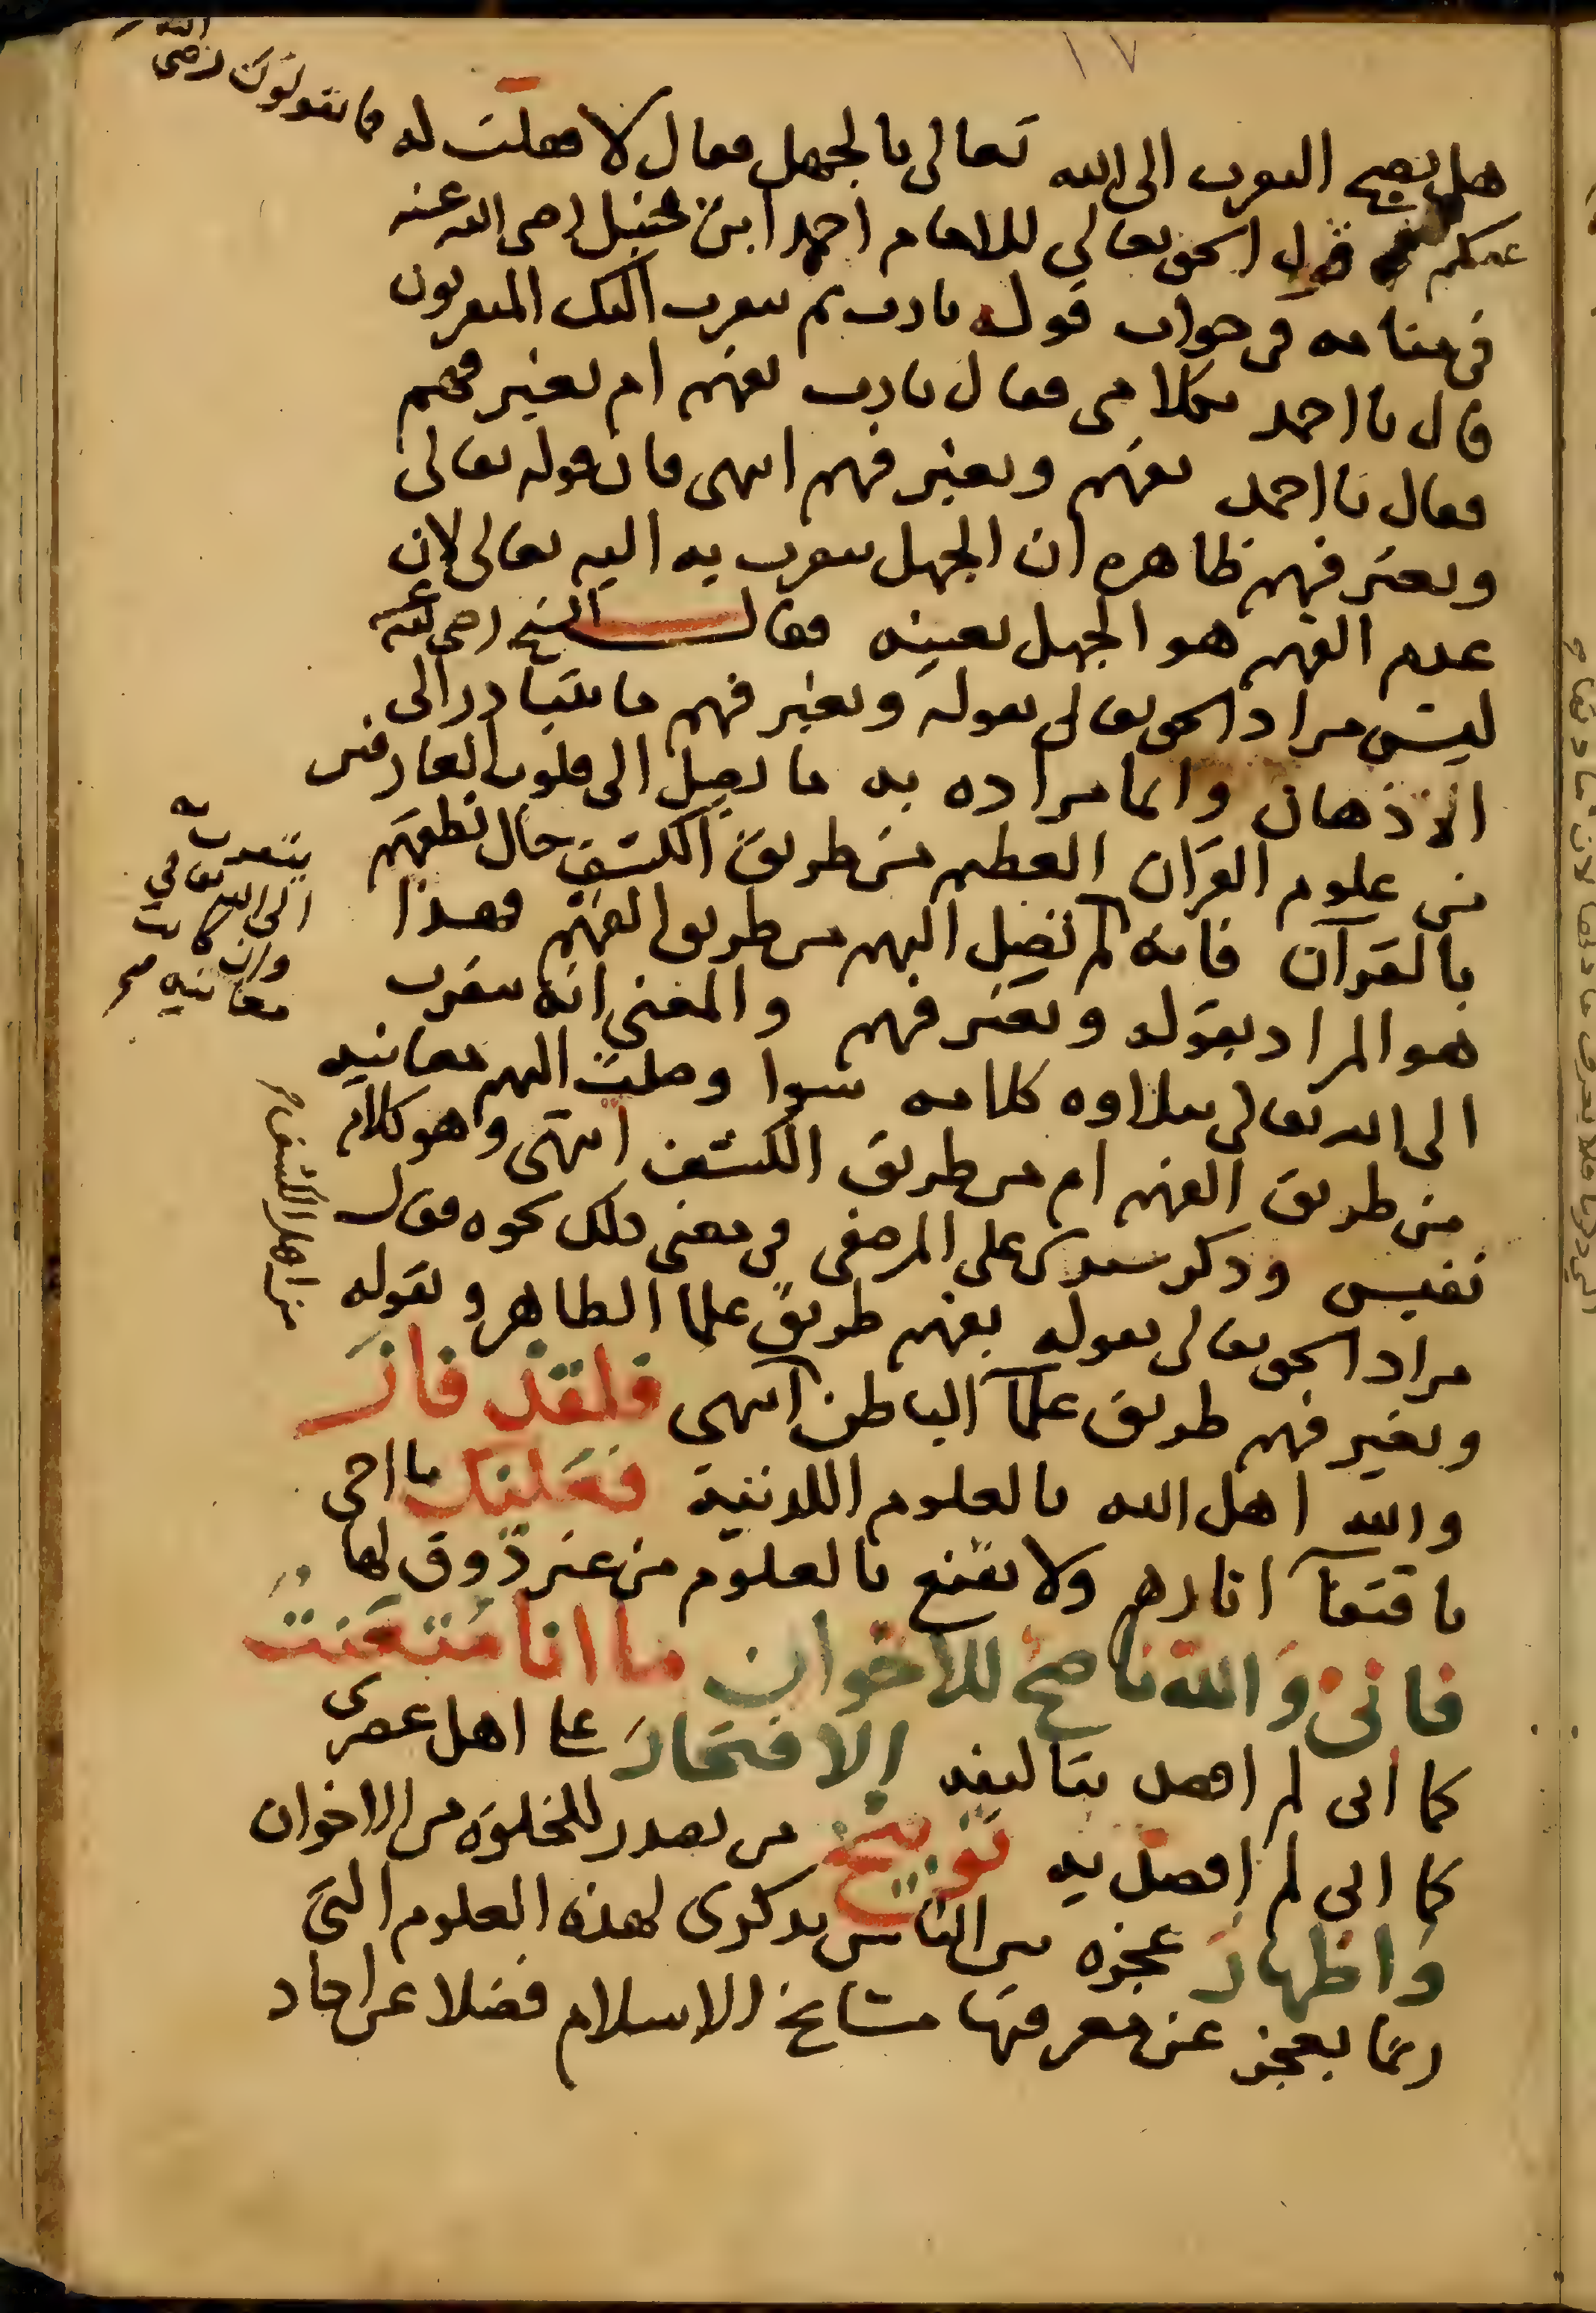 ١٧
هل يصح التقرب الى الله تعالى بالجهل فقال لا فقلت له فما تقولون رضى الله
عنكم فى قول الحق تعالى للامام احمد ابن حنبل رضى الله عنه
فى منامه فى جواب قوله يا رب بم يتقرب اليك المتقربون
قال يا احمد بكلامى فقال يا رب بفهم ام بغير فهم
فقال يا احمد بفهم وبغير فهم انتهى فان قوله تعالى
وبغير فهم ظاهره ان الجهل يتقرب به اليه تعالى لان
عدم الفهم هو الجهل بعينه فقال الشيخ رضى الله عنه
ليس مراد الحق تعالى بقوله وبغير فهم ما يتبادر الى
الاذهان وانما مراده به ما يصل الى قلوب العارفين
من علوم القرآن العظيم من طريق الكشف حال نطقهم
بالقرآن فانه لم تصل اليهم من طريق الفهم فهذا
هو المراد بقوله وبغير فهم والمعنى انه يتقرب
الى الله تعالى بتلاوة كلامه سوا وصلت اليهم معانيه
من طريق الفهم ام من طريق الكشف انتهى وهو كلام
نفيس وذكر سيدى على المرصفى فى معنى ذلك نحوه فقال
مراد الحق تعالى بقوله بفهم طريق علما الظاهر وبقوله
وبغير فهم طريق علمآ الباطن انتهى فلقد فاز
والله اهل الله بالعلوم اللدنية فعليك يا اخى
باقتفآ اثارهم ولا تقنع بالعلوم من غير ذوق لها
فانى والله ناصح للاخوان ما انا متعنت
كما انى لم اقصد بتاليفه الافتخار على اهل عصرى
كما انى لم اقصد به توبيخ من تصدر للخلوة من الاخوان
واظهار عجزه بين الناس بذكرى لهذه العلوم التى
ربما يعجز عن معرفتها مشايخ الاسلام فضلا عن احاد
يتقرب به
الى الله تعالى
وان كانت
معانيه صح
من اهل الكشف